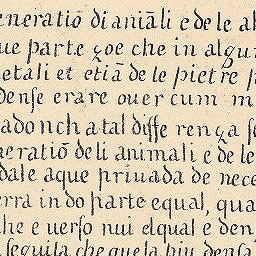 eneratiō di aniāli e de le al
ue parte zoe che in algu
etali et etiā de le pietre p
dense e rare over cum m
ado nch a tal diffe renza se
neratiō de li animali e de le
dale aque privada de nece
erra in do parte equal, qua
he e verso nui el qual e den
seguita che quela piu densa